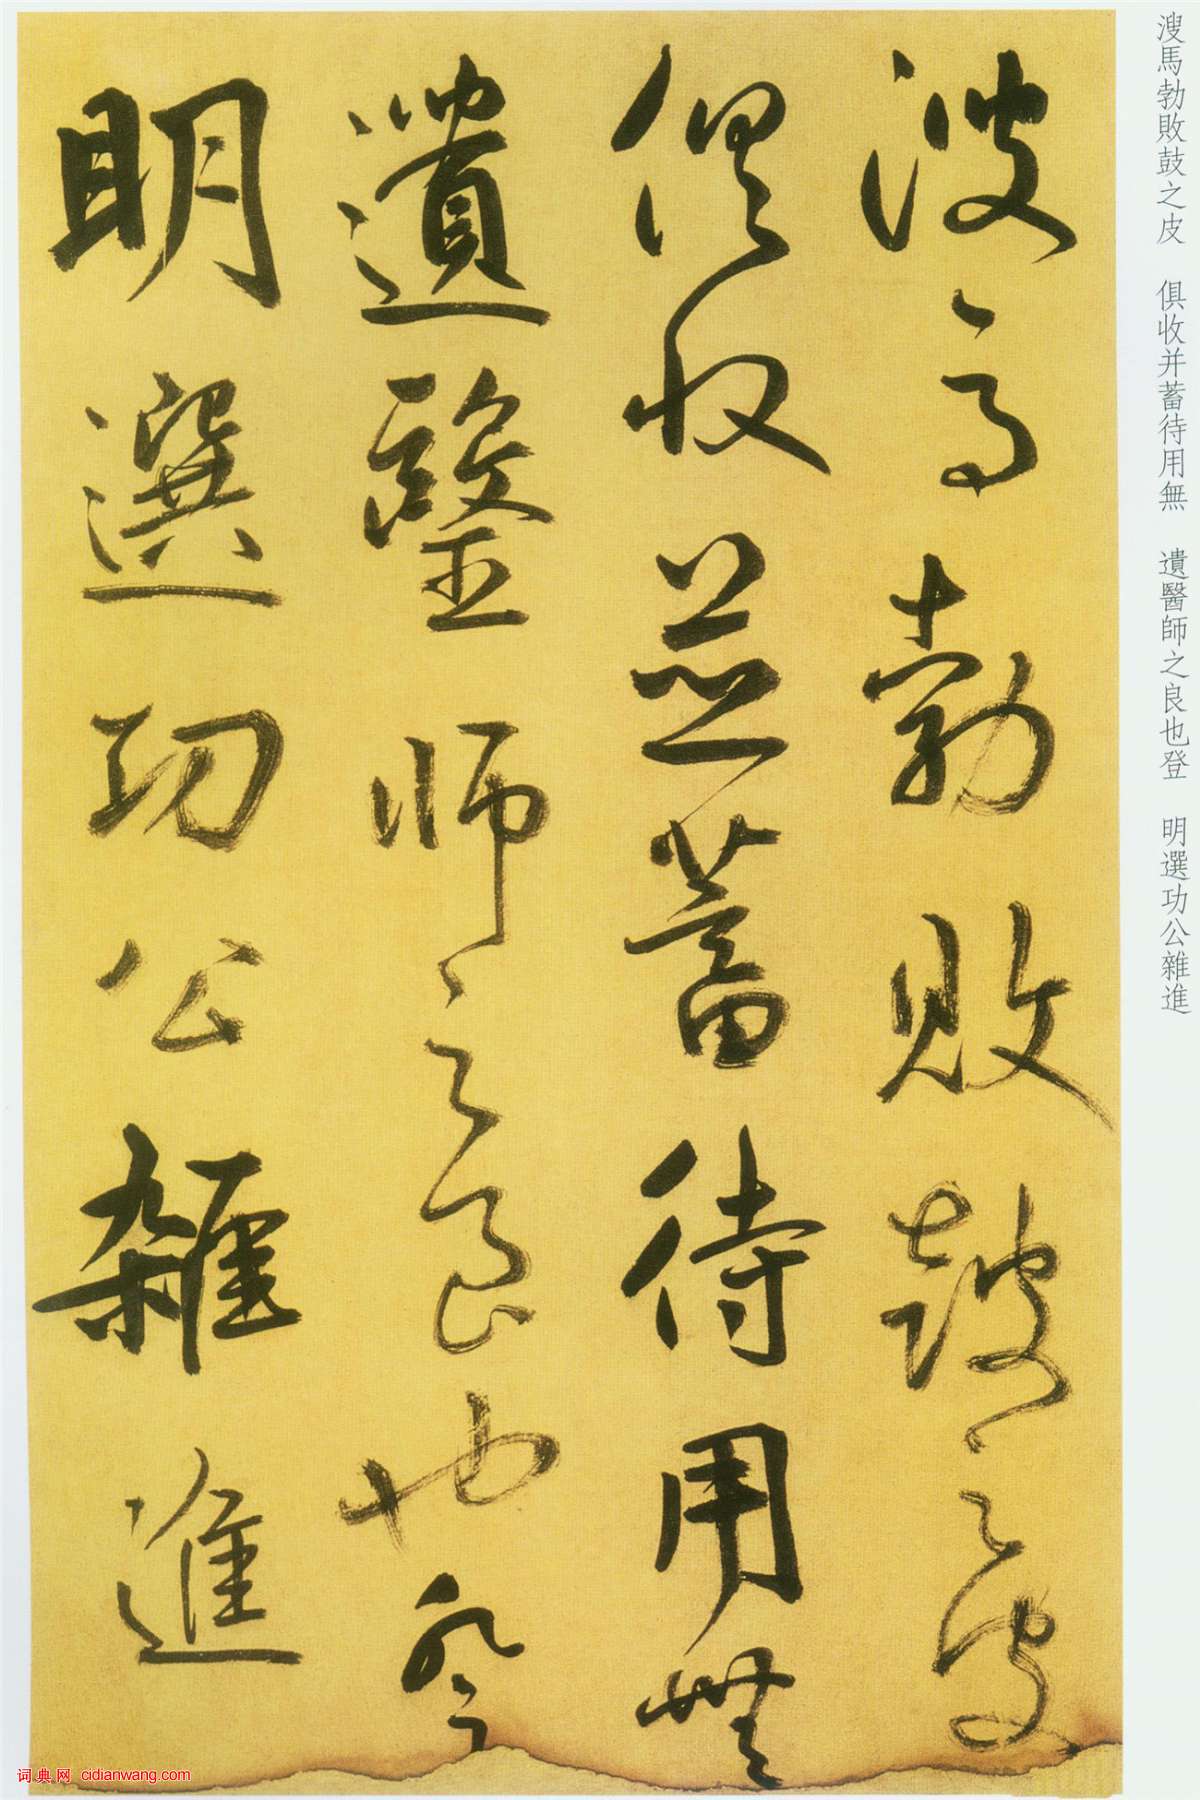 溲馬勃敗鼓之皮 俱收并蓄待用無 遺醫師之良也登 明選功公雜進
溲馬勃敗鼓之皮
俱收並蓄待用無
遺毉師之良也登
明選功公雜進
词典网 cidianwang.com